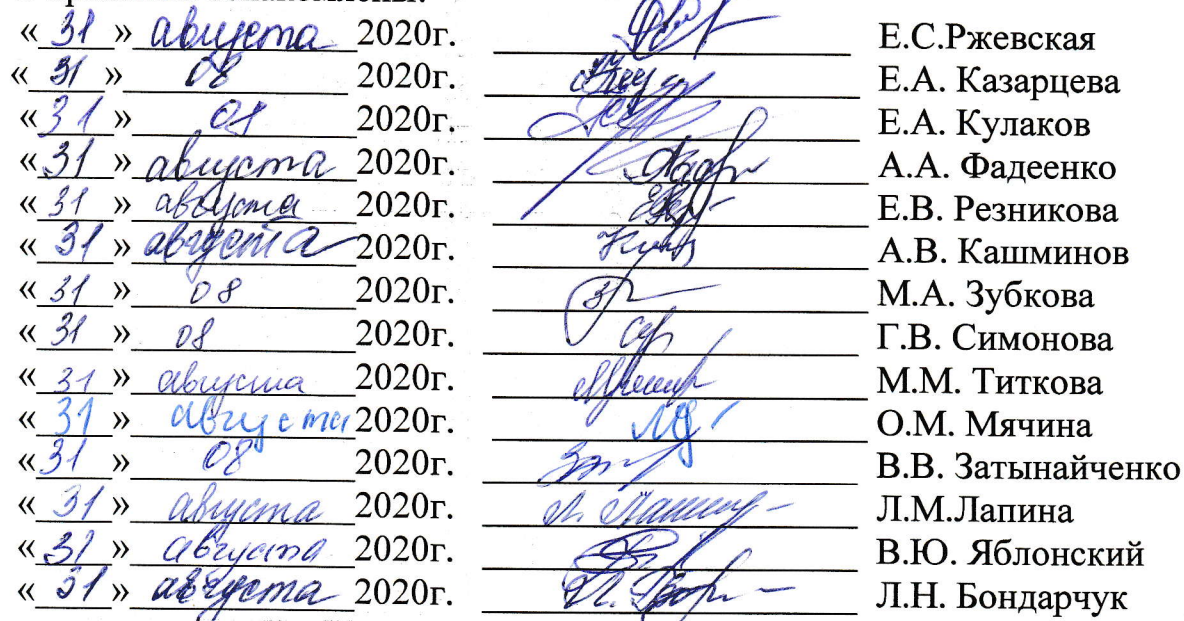 « 31 » августа 2020г. Е.С.Ржевская
« 31 » 08 2020г. Е.А. Казарцева
« 31 » 08 2020г. Е.А. Кулаков
« 31 » августа 2020г. А.А. Фадеенко
« 31 » августа 2020г. Е.В. Резникова
« 31 » августа 2020г. А.В. Кашминов
« 31 » 08 2020г. М.А. Зубкова
« 31 » 08 2020г. Г.В. Симонова
« 31 » августа 2020г. М.М. Титкова
« 31 » августа 2020г. О.М. Мячина
« 31 » 08 2020г. В.В. Затынайченко
« 31 » августа 2020г. Л.М.Лапина
« 31 » августа 2020г. В.Ю. Яблонский
« 31 » августа 2020г. Л.Н. Бондарчук